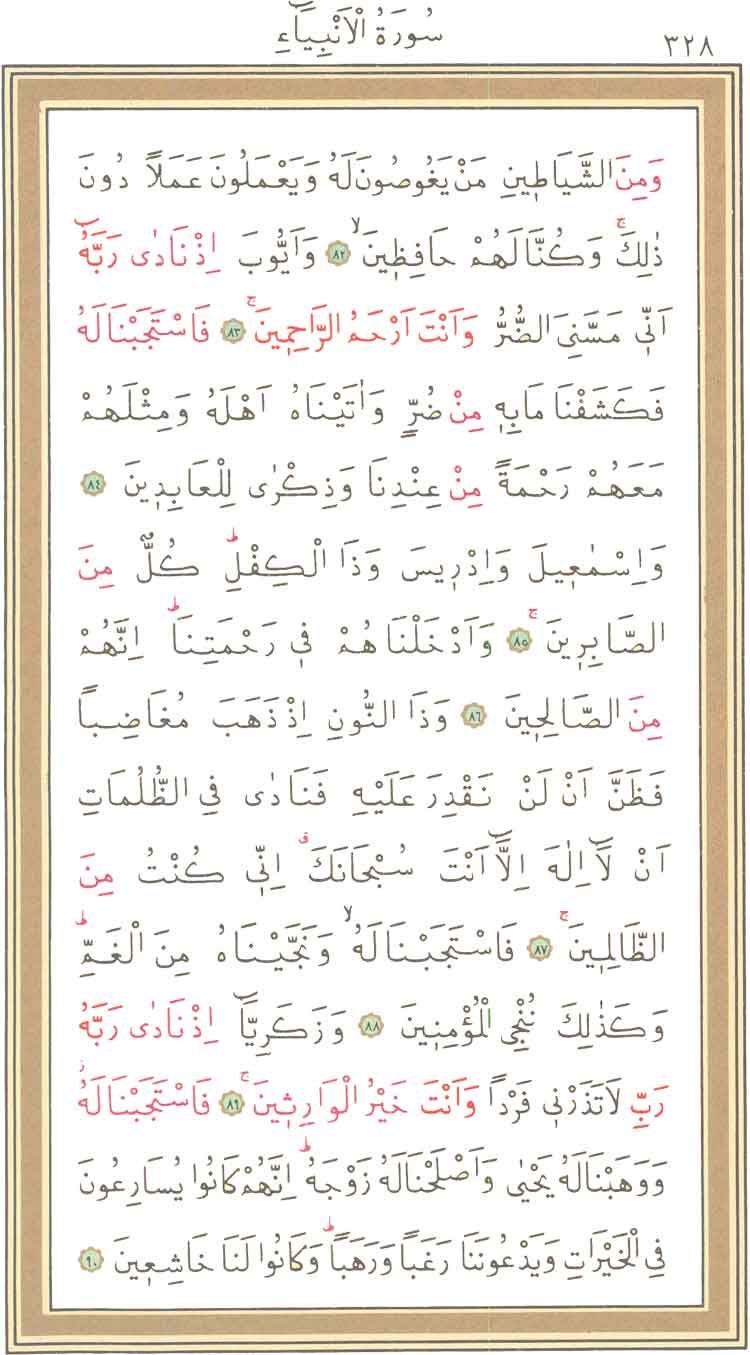 سُورَةُ الْاَنْبِيَٓاءِ
٣٢٨
وَمِنَ الشَّيَاط۪ينِ مَنْ يَغُوصُونَ لَهُ وَيَعْمَلُونَ عَمَلاً دُونَ
ذٰلِكَۚ وَكُنَّا لَهُمْ حَافِظ۪ينَۙ ﴿٨٢﴾ وَاَيُّوبَ اِذْ نَادٰى رَبَّهُٓ
اَنّ۪ي مَسَّنِيَ الضُّرُّ وَاَنْتَ اَرْحَمُ الرَّاحِم۪ينَۚ ﴿٨٣﴾ فَاسْتَجَبْنَا لَهُ
فَكَشَفْنَا مَا بِه۪ مِنْ ضُرٍّ وَاٰتَيْنَاهُ اَهْلَهُ وَمِثْلَهُمْ
مَعَهُمْ رَحْمَةً مِنْ عِنْدِنَا وَذِكْرٰى لِلْعَابِد۪ينَ ﴿٨٤﴾
وَاِسْمٰع۪يلَ وَاِدْر۪يسَ وَذَا الْكِفْلِۜ كُلٌّ مِنَ
الصَّابِر۪ينَۚ ﴿٨٥﴾ وَاَدْخَلْنَاهُمْ ف۪ي رَحْمَتِنَاۜ اِنَّهُمْ
مِنَ الصَّالِح۪ينَ ﴿٨٦﴾ وَذَا النُّونِ اِذْ ذَهَبَ مُغَاضِباً
فَظَنَّ اَنْ لَنْ نَقْدِرَ عَلَيْهِ فَنَادٰى فِي الظُّلُمَاتِ
اَنْ لَٓا اِلٰهَ اِلَّٓا اَنْتَ سُبْحَانَكَۗ اِنّ۪ي كُنْتُ مِنَ
الظَّالِم۪ينَۚ ﴿٨٧﴾ فَاسْتَجَبْنَا لَهُۙ وَنَجَّيْنَاهُ مِنَ الْغَمِّۜ
وَكَذٰلِكَ نُنْجِي الْمُؤْمِن۪ينَ ﴿٨٨﴾ وَزَكَرِيَّٓا اِذْ نَادٰى رَبَّهُ
رَبِّ لَا تَذَرْن۪ي فَرْداً وَاَنْتَ خَيْرُ الْوَارِث۪ينَۚ ﴿٨٩﴾ فَاسْتَجَبْنَا لَهُۘ
وَوَهَبْنَا لَهُ يَحْيٰى وَاَصْلَحْنَا لَهُ زَوْجَهُۜ اِنَّهُمْ كَانُوا يُسَارِعُونَ
فِي الْخَيْرَاتِ وَيَدْعُونَنَا رَغَباً وَرَهَباًۜ وَكَانُوا لَنَا خَاشِع۪ينَ ﴿٩٠﴾